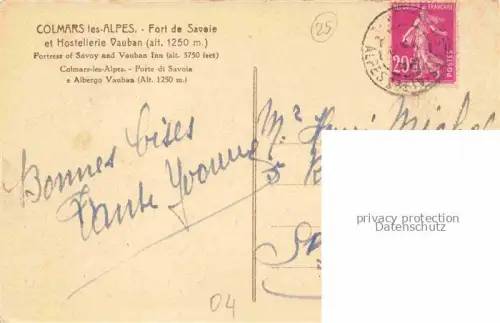 COLMARS les-ALPES. - Fort de Savoie
et Hostellerie Vauban (alt. 1250 m.)
Fortress of Savoy and Vauban Inn (alt. 3750 feet)
Colmars-les-Alpes. - Forte di Savoia
e Albergo Vauban (Alt. 1250 m.)
25
FRANÇAISE
20c
POSTES
Bonnes bises
Tante Yvonne
Mr Henri Michel
5
04
privacy protection
Datenschutz